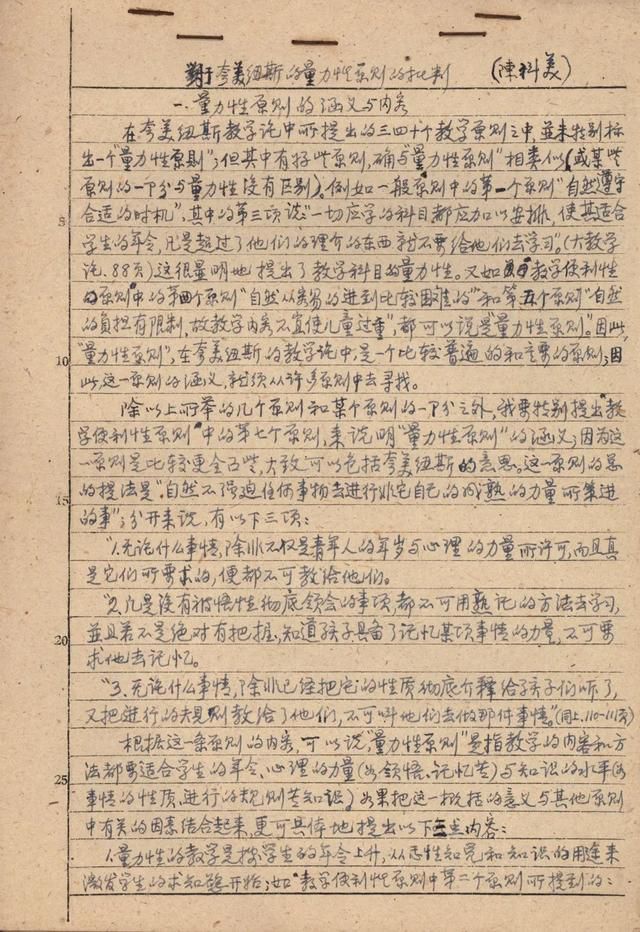 對于夸美纽斯的量力性原则的批判 (陳科美)
一、量力性原则的涵义与内容
在夸美纽斯教学论中所提出的三四十个教学原则之中,並未特别标
出一个"量力性原则";但其中有好些原则,确与"量力性原则"相类似(或某些
原则的一部分与量力性没有区别)。例如一般原则中的第一个原则"自然遵守
5
合适的时机",其中的第三项说:"一切应学的科目都应加以安排,使其适合
学生的年令,凡是超过了他们的理解的东西就不要给他们去学习"(大教学
论.88页)这很显明地提出了教学科目的量力性。又如教学便利性
的原则中的第四个原则"自然从容易的进到比较困难的"和第五个原则"自然
的負担有限制,故教学内容不宜使儿童过重",都可以说是"量力性原则"。因此,
10
"量力性原则",在夸美纽斯的教学论中,是个比较普遍的和主要的原则;因
此,这一原则的涵义,就须从许多原则中去寻找。
除以上所举的几个原则和某个原则的一部分之外,我要特别提出"教
学便利性原则"中的第七个原则,来说明"量力性原则"的涵义;因为这
一原则是比较更全面些,大致可以包括夸美纽斯的意思。这一原则的总
15
的提法是"自然不强迫任何事物去进行非它自己的成熟的力量所策进
的事";分开来说,有以下三项:
"1.无论什么事情,除非不仅是青年人的年岁与心理的力量所许可,而且真
是它们所要求的,便都不可教给他们。
"2.凡是没有被悟性彻底领会的事项,都不可用熟记的方法去学习,
20
並且若不是绝对有把握,知道孩子具备了记忆某项事情的力量,不可要
求他去记忆。
"3.无论什么事情,除非已经把它的性质彻底介释给孩子们听了,
又把进行的规则教给了他们,不可叫他们去做那件事情。"(同上.110—111页)
根据这一条原则的内容,可以说"量力性原则"是指教学的内容和方
25
法都要适合学生的年令、心理的力量(如领悟、记忆等)与知识的水平(如
事情的性质、进行的规则等知识)如果把这一概括的意义与其他原则
中有关的因素结合起来,更可具体地提出以下三点内容:
1.量力性的教学是按学生的年令上升,从感性知觉和知识的用途来
激发学生的求知慾开始;如"教学便利性原则中第二个原则所提到的: